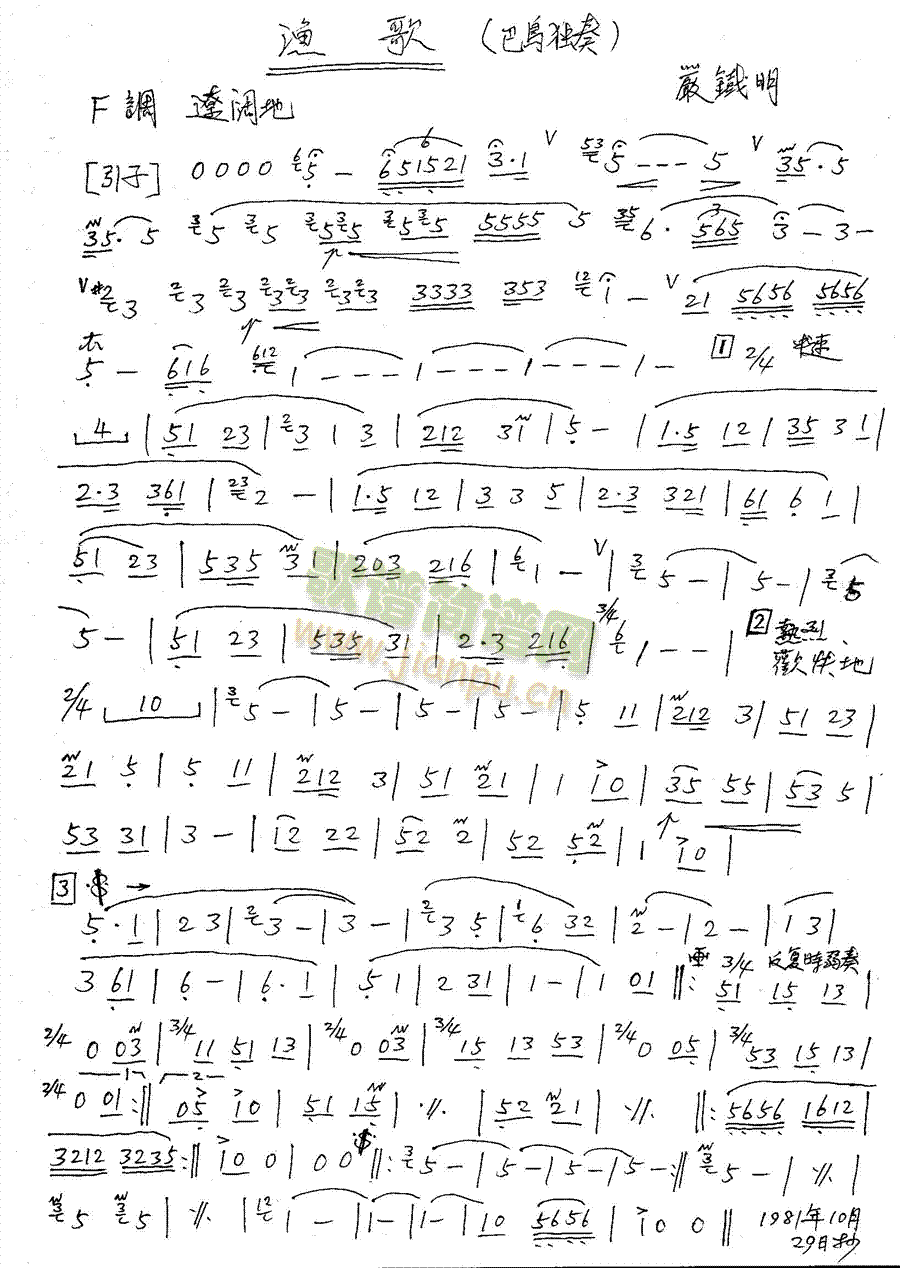 渔 歌 (巴烏独奏)
F 調 遼阔地 嚴鐵明
[引子] 0 0 0 0 6 5 — 6 6 5 1 5 2 1 3·1 V 53 5 - - - 5 V 35·5
35·5 3 5 3 5 3 5 3 5 3 5 3 5 5555 5 35 6· 3 565 3 — 3 —
V #2 3 2 3 2 3 2 3 2 3 2 3 2 3 3333 353 12 1 — V 21 5656 5656
5 — 616 612 1 - - - 1 - - - 1 - - - 1 — 1 2/4 中速
4 | 51 23 | 2 3 1 3 | 212 31 | 5 — | 1·5 12 | 35 31 |
2·3 361 | 23 2 — | 1·5 12 | 3 3 5 | 2·3 321 | 61 6 1 |
51 23 | 535 31 | 203 216 | 6 1 — V | 3 5 — | 5 — | 3 5
5 — | 51 23 | 535 31 | 2·3 216 | 3/4 6 1 - - | 2 熱烈、
歡快地
2/4 10 | 3 5 — | 5 — | 5 — | 5 — | 5 11 | 212 3 | 51 23 |
21 5 | 5 11 | 212 3 | 51 21 | 1 10 | 35 55 | 53 5 |
53 31 | 3 — | 12 22 | 52 2 | 52 52 | 1 10 |
3 𝄋 →
5·1 | 2 3 | 2 3 — | 3 — | 2 3 5 | 1 6 32 | 2 — | 2 — | 1 3 |
3 61 | 6 — | 6·1 | 5 1 | 2 31 | 1 — | 1 01 ‖: 3/4 反复時弱奏 51 15 13 |
2/4 0 03 | 3/4 11 51 13 | 2/4 0 03 | 3/4 15 13 53 | 2/4 0 05 | 3/4 53 15 13 |
2/4 0 01 :‖ 1 2 05 10 | 51 15 | ·//. | 52 21 | ·//. ‖: 5656 1612 |
3212 3235 :‖ 10 0 | 0 0 𝄋 ‖: 3 5 — | 5 — | 5 — | 5 — :‖ 3 5 — | ·//. |
3 5 3 5 | ·//. | 12 1 — | 1 — | 1 — | 10 5656 | 10 0 ‖ 1981年10月
29日抄
歌谱简谱网
www.jianpu.cn